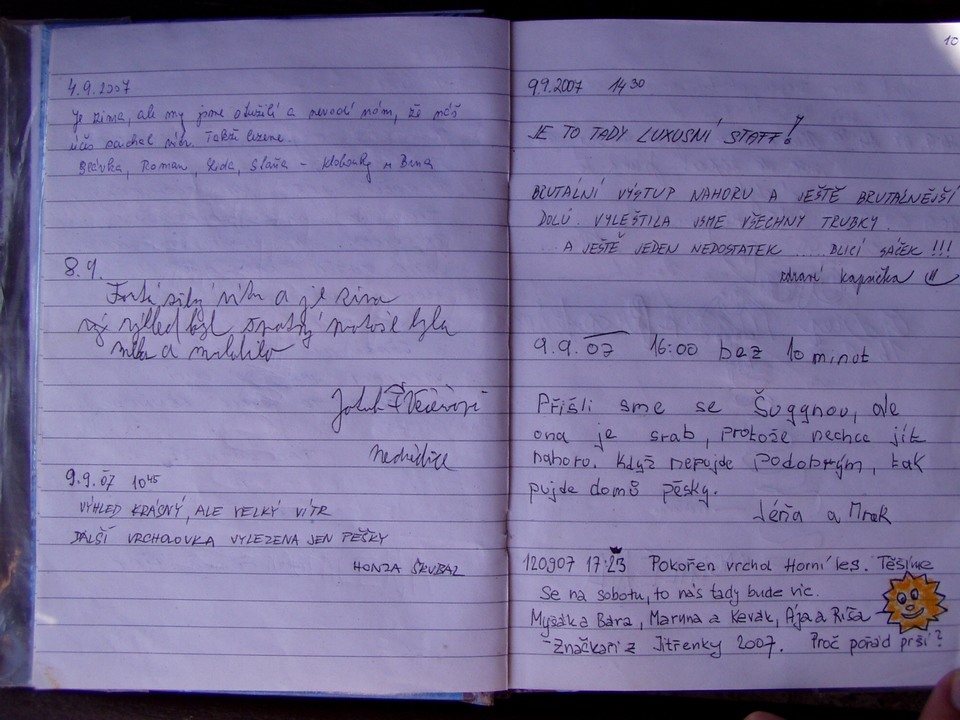 4.9.2007
Je zima, ale my jsme otužilí a nevadí nám, že náš
účes pachal vítr. Takže lezeme.
Slávka, Roman, Lída, Sláva - Klobouky u Brna
8.9.
Fouká silný vítr a je zima
výhled byl špatný protože byla
mlha a
Jakub
Nedvědice
9.9.07 10 45
VÝHLED KRÁSNÝ, ALE VELKÝ VÍTR
DALŠÍ VRCHLOVKA VYLEZENA JEN PĚŠKY
HONZA ŠKUBAL
10
9.9.2007 14 30
JE TO TADY LUXUSNÍ STAFF!
BRUTÁLNÍ VÝSTUP NAHORU A JEŠTĚ BRUTÁLNĚJŠÍ
DOLŮ. VYLEŠTILA JSME VŠECHNY TRUBKY.
... A JEŠTĚ JEDEN NEDOSTATEK ..... BLICÍ SÁČEK !!!
zdraví kapička
9.9.07 16:00 bez 10 minut
Přišli sme se Šuggnou, ale
ona je srab, protože nechce jít
nahoru. Když nepujde podobrým, tak
pujde domů pěsky.
Léňa a Mrak
120907 17:23 Pokořen vrchol Horní les. Těšíme
se na sobotu, to nás tady bude víc.
Myšák a Bára, Maruna a Kevak, Ája a Ríša
- Značkaři z Jitřenky 2007. Proč pořád prší?